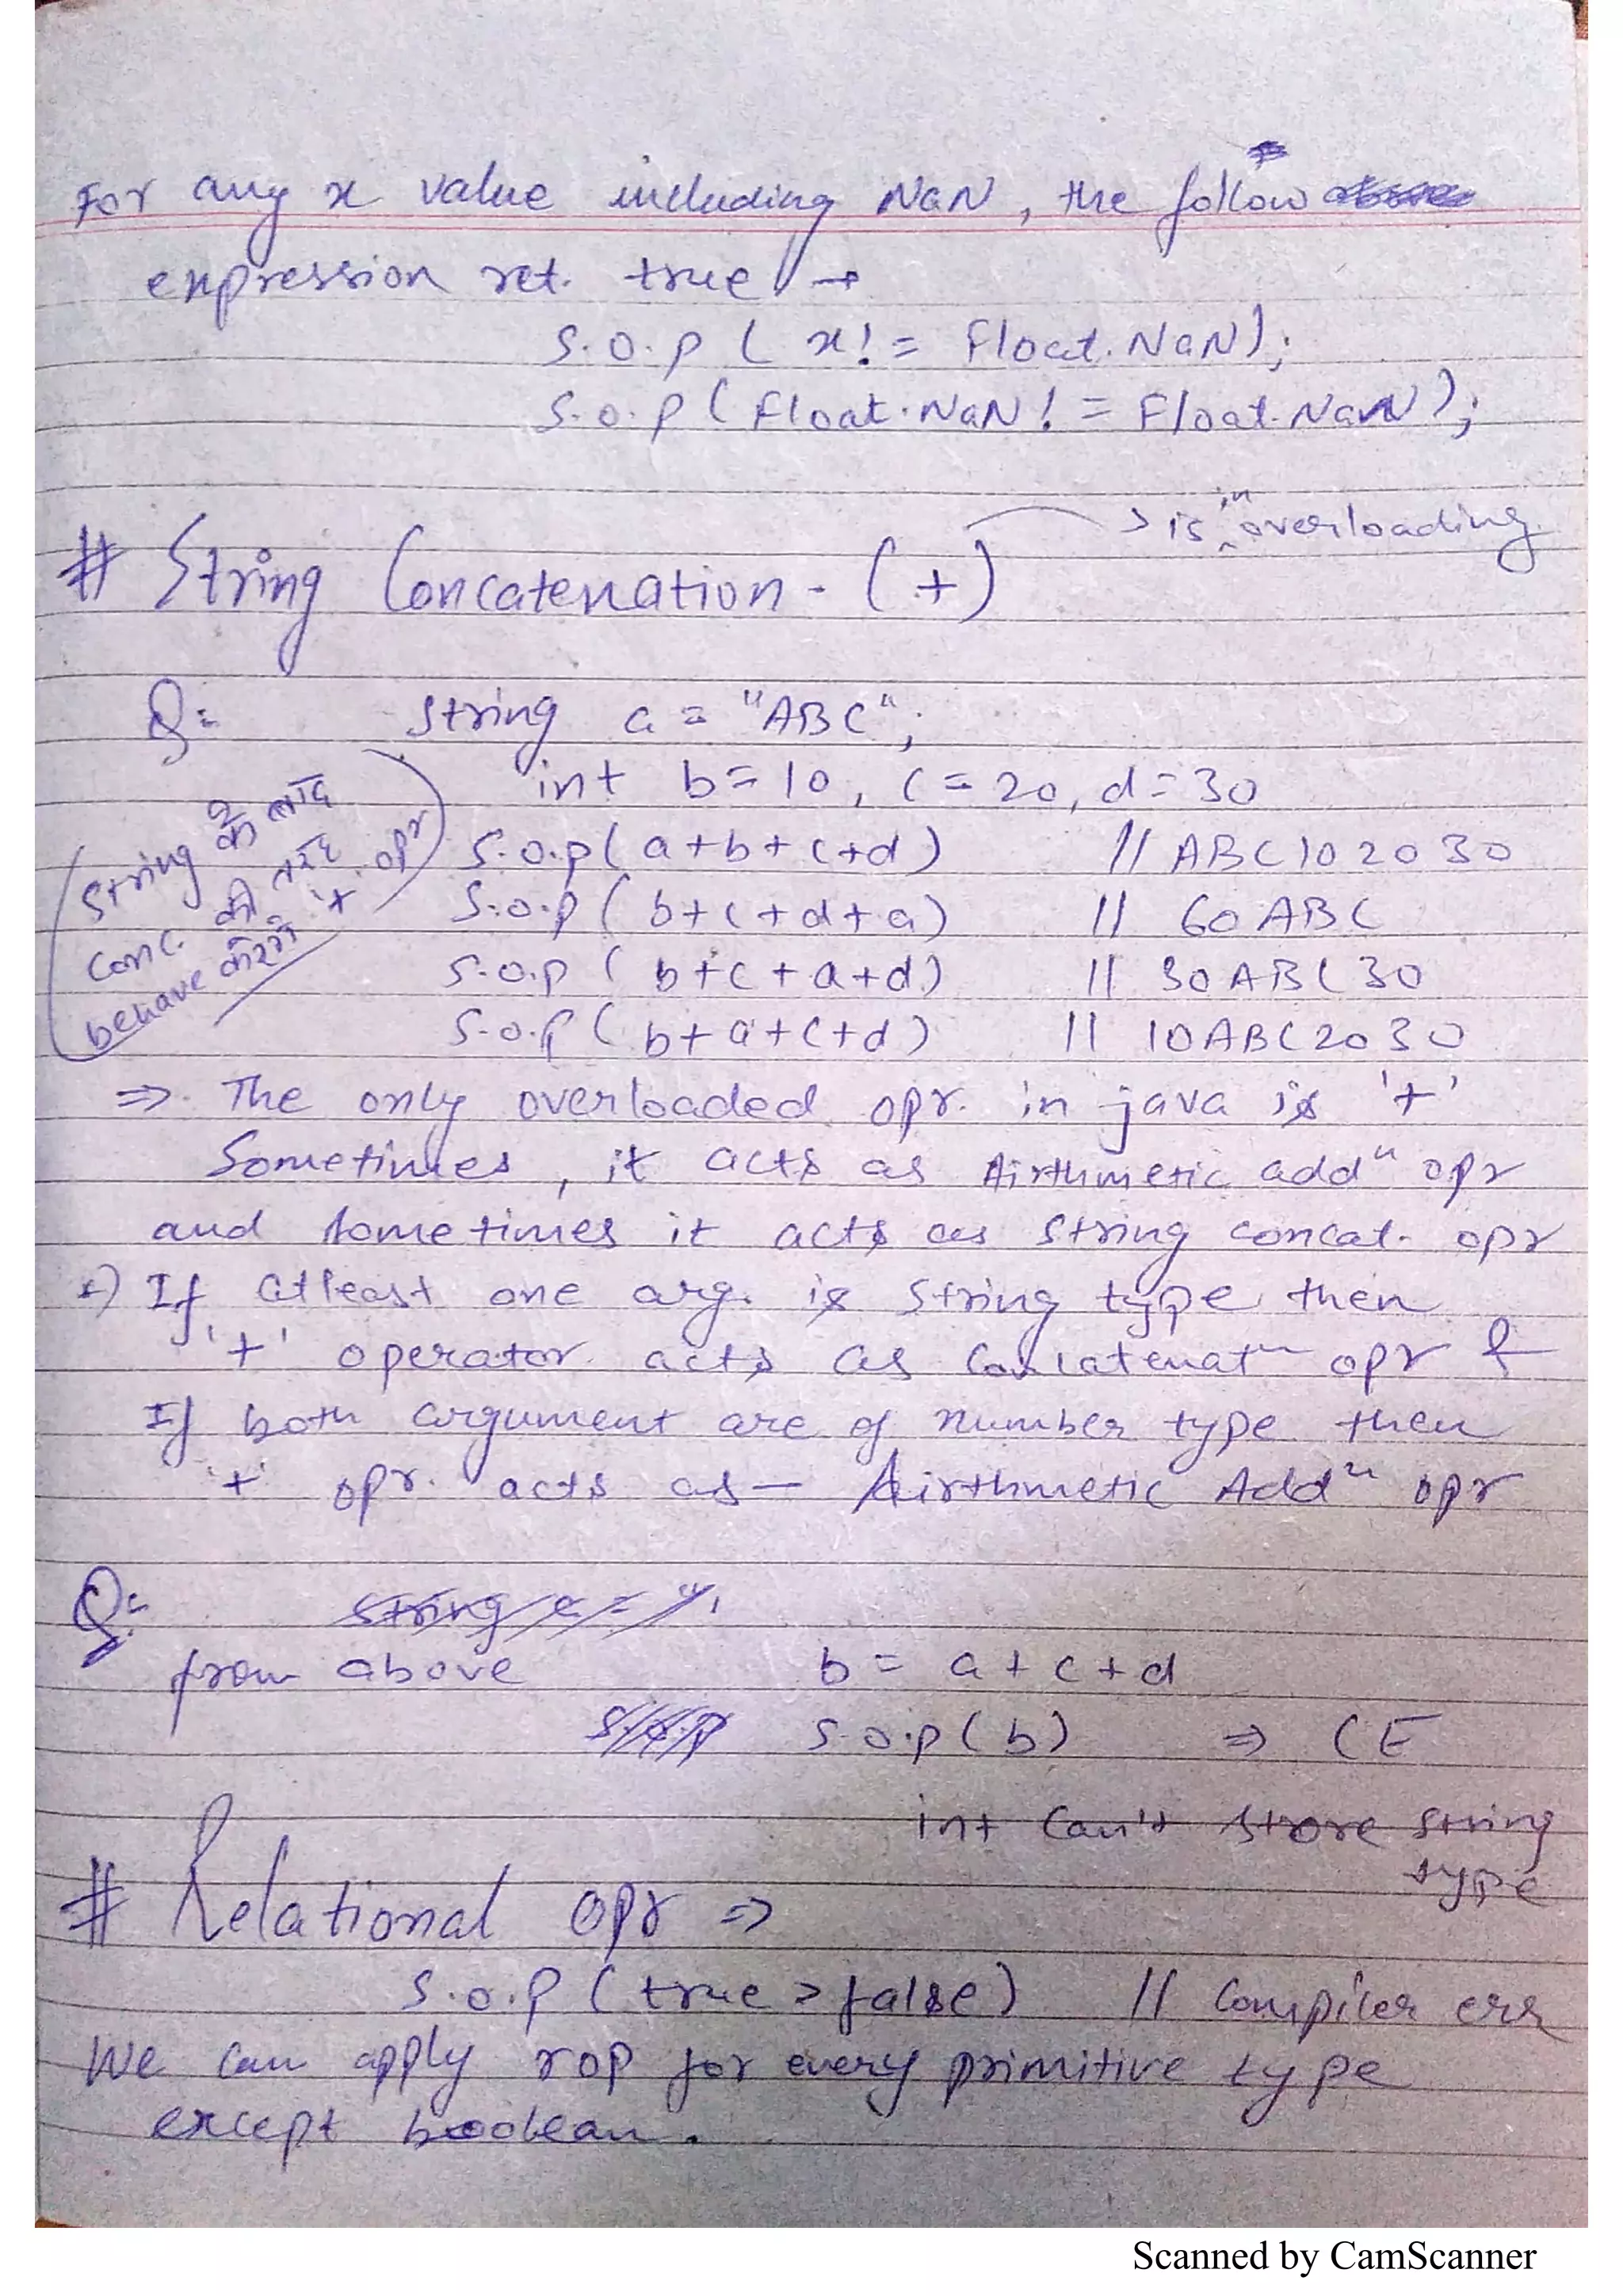 For any x value including NaN, the follow
expression ret. true →
S.O.P ( x! = Float.NaN);
S.O.P ( Float.NaN! = Float.NaN);
→ is in overloading
# String Concatenation - (+)
Q= String a = "ABC";
int b=10, c=20, d=30
S.O.P( a+b+c+d) // ABC102030
S.O.P ( b+c+d+a) // 60ABC
S.O.P ( b+c+a+d) // 30ABC30
S.O.P ( b+a+c+d) // 10ABC2030
String के बाद
conc. की तरह
behave करेगा '+' opr
⇒ The only overloaded opr. in java is '+'
Sometimes, it acts as Airthmetic addn opr
and sometimes it acts as String concat. opr
If atleast one arg. is String type then
'+' operator acts as Concatenatn opr &
If both argument are of number type then
'+' opr. acts as — Airthmetic Addn opr
Q=
from above b = a + c + d
S.O.P ( b) ⇒ CE
int can't store string
type
# Relational opr ⇒
S.O.P ( true > false) // Compiler err
We can apply rop for every primitive type
except boolean.
Scanned by CamScanner